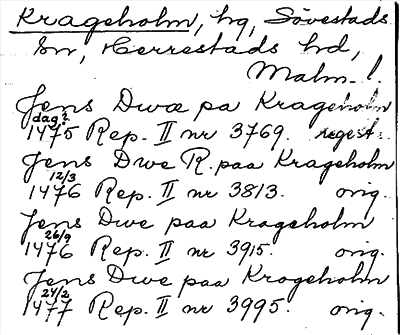 Krageholm, hg, Sövestads
sn, Herrestads hd,
Malm. l.
Jens Dwæ pa Krageholm
dag?
1475 Rep. II nr 3769. regest.
Jens Dwe R. paa Krageholm
12/3
1476 Rep. II nr 3813. orig.
Jens Dwe paa Krageholm
26/9
1476 Rep. II nr 3915. orig.
Jens Dwe paa Krogeholm
24/2
1477 Rep. II nr 3995. orig.